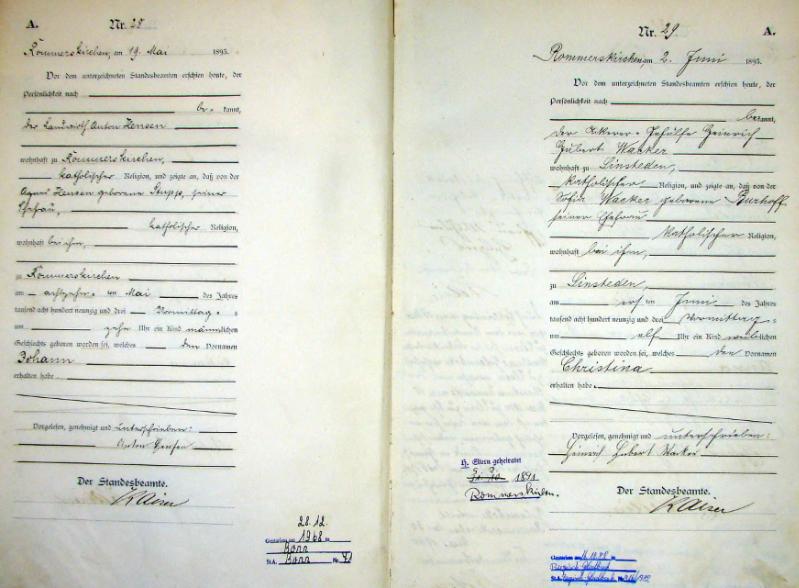 A.
Nr. 28
Rommerskirchen, am 19. Mai 1893.
Vor dem unterzeichneten Standesbeamten erschien heute, der
Persönlichkeit nach
be- kannt,
der Landwirth Anton Hensen
wohnhaft zu Rommerskirchen,
katholischer Religion, und zeigte an, daß von der
Agnes Hensen geborene Stupp, seiner
Ehefrau,
katholischer Religion,
wohnhaft bei ihm,
zu Rommerskirchen
am achtzehn-ten Mai des Jahres
tausend acht hundert neunzig und drei Vormittag-s
um zehn Uhr ein Kind männlichen
Geschlechts geboren worden sei, welches den Vornamen
Johann
erhalten habe
Vorgelesen, genehmigt und unterschrieben:
Anton Hensen
Der Standesbeamte.
Kaiser
28.12.
Gestorben am 1968 in
Bonn
St.A. Bonn Nr.
Nr. 29
A.
Rommerskirchen, am 2. Juni 1893.
Vor dem unterzeichneten Standesbeamten erschien heute, der
Persönlichkeit nach
bekannt,
der Ackerer-Gehülfe Heinrich
Hubert Wacker
wohnhaft zu Sinsteden,
katholischer Religion, und zeigte an, daß von der
Sofia Wacker geborene Burhoff
seiner Ehefrau
katholischer Religion,
wohnhaft bei ihm,
zu Sinsteden,
am ersten Juni des Jahres
tausend acht hundert neunzig und drei Vormittag-s
um elf Uhr ein Kind weiblichen
Geschlechts geboren worden sei, welches den Vornamen
Christina
erhalten habe.
Vorgelesen, genehmigt und unterschrieben:
Heinrich Hubert Wacker
Der Standesbeamte.
Kaiser
Eltern geheiratet
1891
Rommerskirchen.
Gestorben am
Bergisch Gladbach
St.A. Bergisch Gladbach Nr.